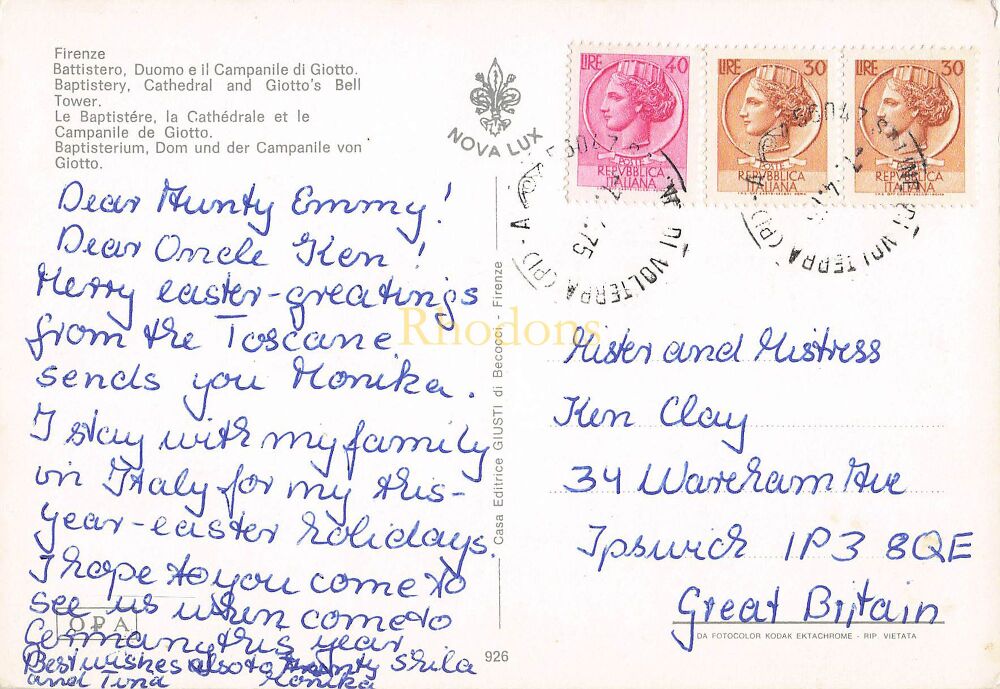 Firenze
Battistero, Duomo e il Campanile di Giotto.
Baptistery, Cathedral and Giotto's Bell
Tower.
Le Baptistére, la Cathédrale et le
Campanile de Giotto.
Baptisterium, Dom und der Campanile von
Giotto.
NOVA LUX
LIRE 40
REPVBBLICA
ITALIANA
LIRE 30
REPVBBLICA
ITALIANA
LIRE 30
REPVBBLICA
ITALIANA
56047
DI VOLTERRA (PI) - A
75
56047
DI VOLTERRA (PI) - A
Dear Aunty Emmy!
Dear Oncle Ken!
Merry easter-greatings
from the Toscane
sends you Monika.
I stay with my family
in Italy for my this-
year-easter holidays.
I hope to you come to
see us when come to
Germany this year
Best wishes also to Aunty Shila
and Tina Monika
OPA
Casa Editrice GIUSTI di Becocci - Firenze
926
Rhodons
Mister and Mistress
Ken Clay
34 Wareham Ave
Ipswich IP3 8QE
Great Britain
DA FOTOCOLOR KODAK EKTACHROME - RIP. VIETATA